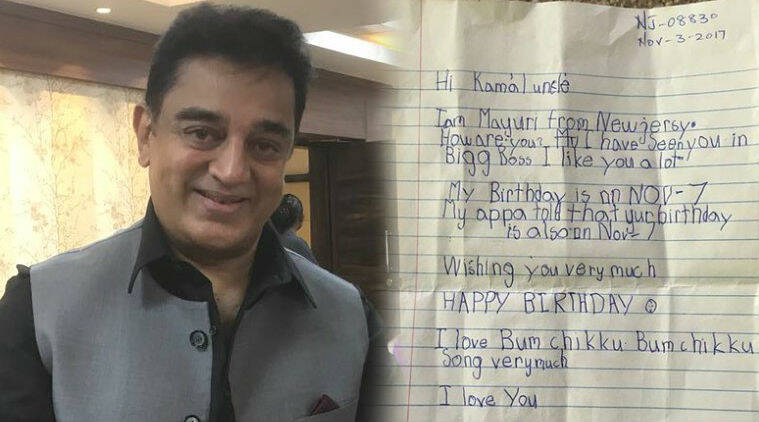 NJ-08830
Nov-3-2017
Hi Kamal uncle
I am Mayuri from New jersy.
How are you? My I have seen you in
Bigg Boss I like you a lot
My Birthday is on NOV-7
My appa told that yur birthday
is also on Nov-7
Wishing you very much
HAPPY BIRTHDAY ☺
I love Bum chikku Bum chikku
Song very much
I love You